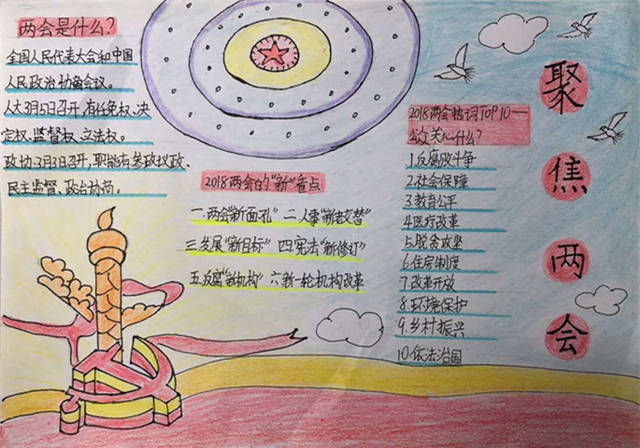 两会是什么?
全国人民代表大会和中国
人民政治协商会议。
人大3月5日召开,有任免权、决
定权、监督权、立法权。
政协3月3日召开,职能有参政议政、
民主监督、政治协商。
2018两会的“新”看点
一.两会“新面孔” 二.人事“新老交替”
三.发展“新目标” 四.宪法“新修订”
五.反腐“新机构” 六.新一轮机构改革
2018两会热词TOP10—
公众关心什么?
1.反腐败斗争
2.社会保障
3.教育公平
4.医疗改革
5.脱贫攻坚
6.住房制度
7.改革开放
8.环境保护
9.乡村振兴
10.依法治国
聚
焦
两
会